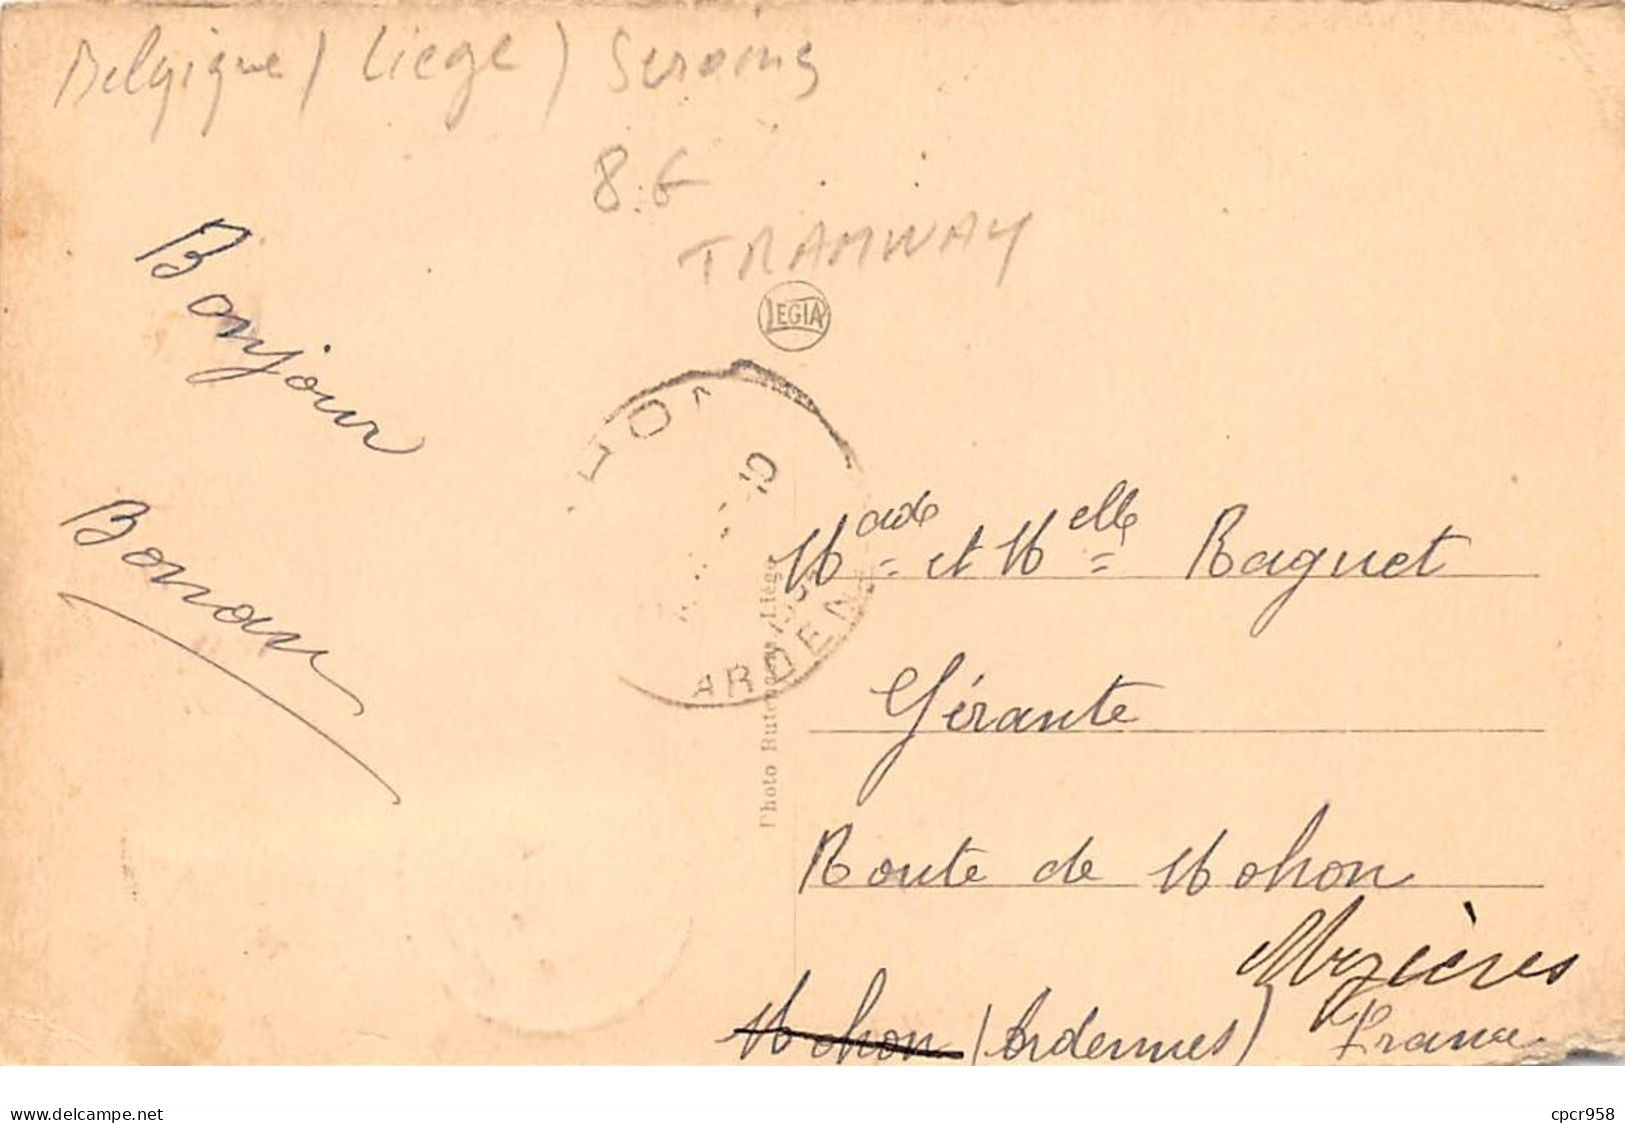 Belgique / Liege / Seraing
8.€
TRAMWAY
LEGIA
Bonjour
Bonan
ARDEN
Photo Liége
Made et Melle Raguet
Gérante
Route de Mohon
Mezières
Mohon (Ardennes) France
www.delcampe.net
cpcr958